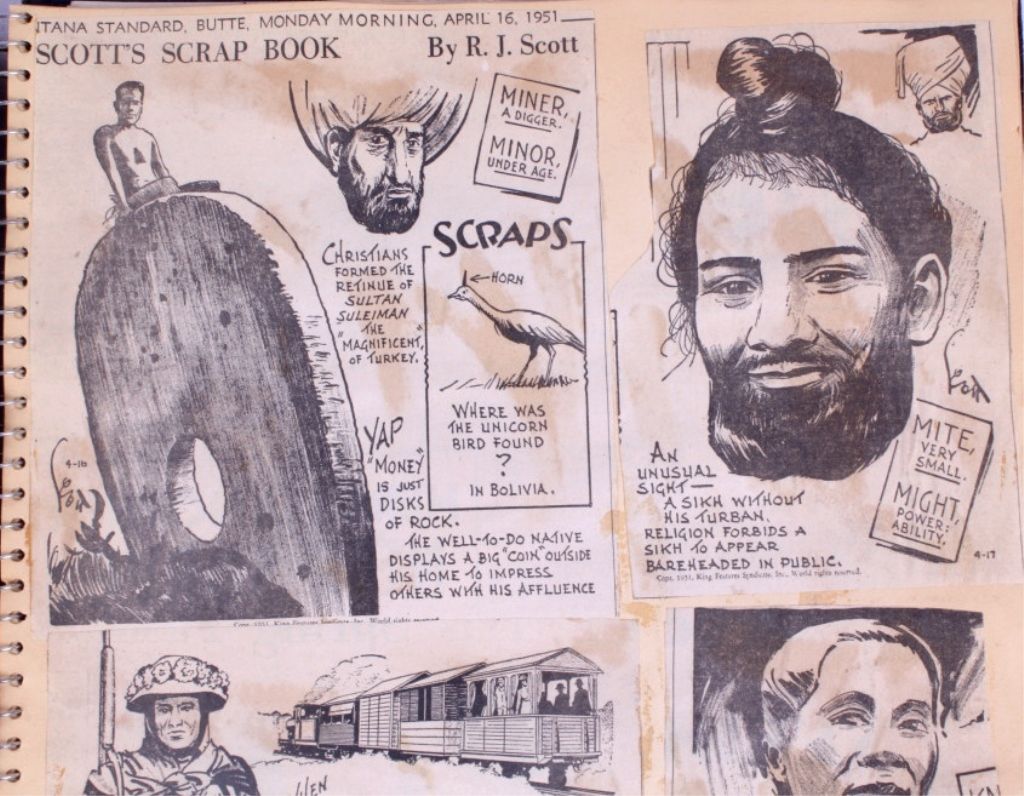 NTANA STANDARD, BUTTE, MONDAY MORNING, APRIL 16, 1951
SCOTT'S SCRAP BOOK By R. J. Scott
MINER,
A DIGGER.
MINOR,
UNDER AGE.
CHRISTIANS
FORMED THE
RETINUE OF
SULTAN
SULEIMAN
THE
"MAGNIFICENT,"
OF TURKEY.
SCRAPS
HORN
WHERE WAS
THE UNICORN
BIRD FOUND
?
IN BOLIVIA.
YAP
"MONEY"
IS JUST
DISKS
OF ROCK.
THE WELL-TO-DO NATIVE
DISPLAYS A BIG "COIN" OUTSIDE
HIS HOME TO IMPRESS
OTHERS WITH HIS AFFLUENCE
4-16
Scott
Copr. 1951, King Features Syndicate, Inc., World rights reserved.
Scott
MITE,
VERY
SMALL.
MIGHT,
POWER;
ABILITY.
4-17
AN
UNUSUAL
SIGHT—
A SIKH WITHOUT
HIS TURBAN.
RELIGION FORBIDS A
SIKH TO APPEAR
BAREHEADED IN PUBLIC.
Copr. 1951, King Features Syndicate, Inc., World rights reserved.